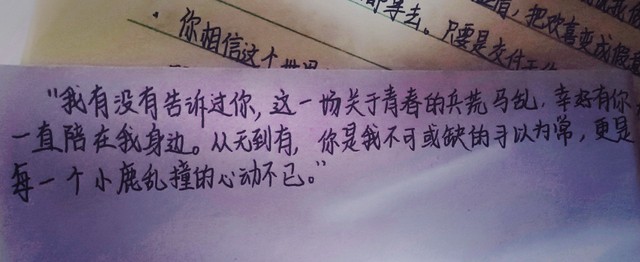 ·你相信这个世界
都等去。只要是交付
把欢喜变成
"我有没有告诉过你,这一场关于青春的兵荒马乱,幸好有你
一直陪在我身边。从无到有,你是我不可或缺的习以为常,更是
每一个小鹿乱撞的心动不已。"